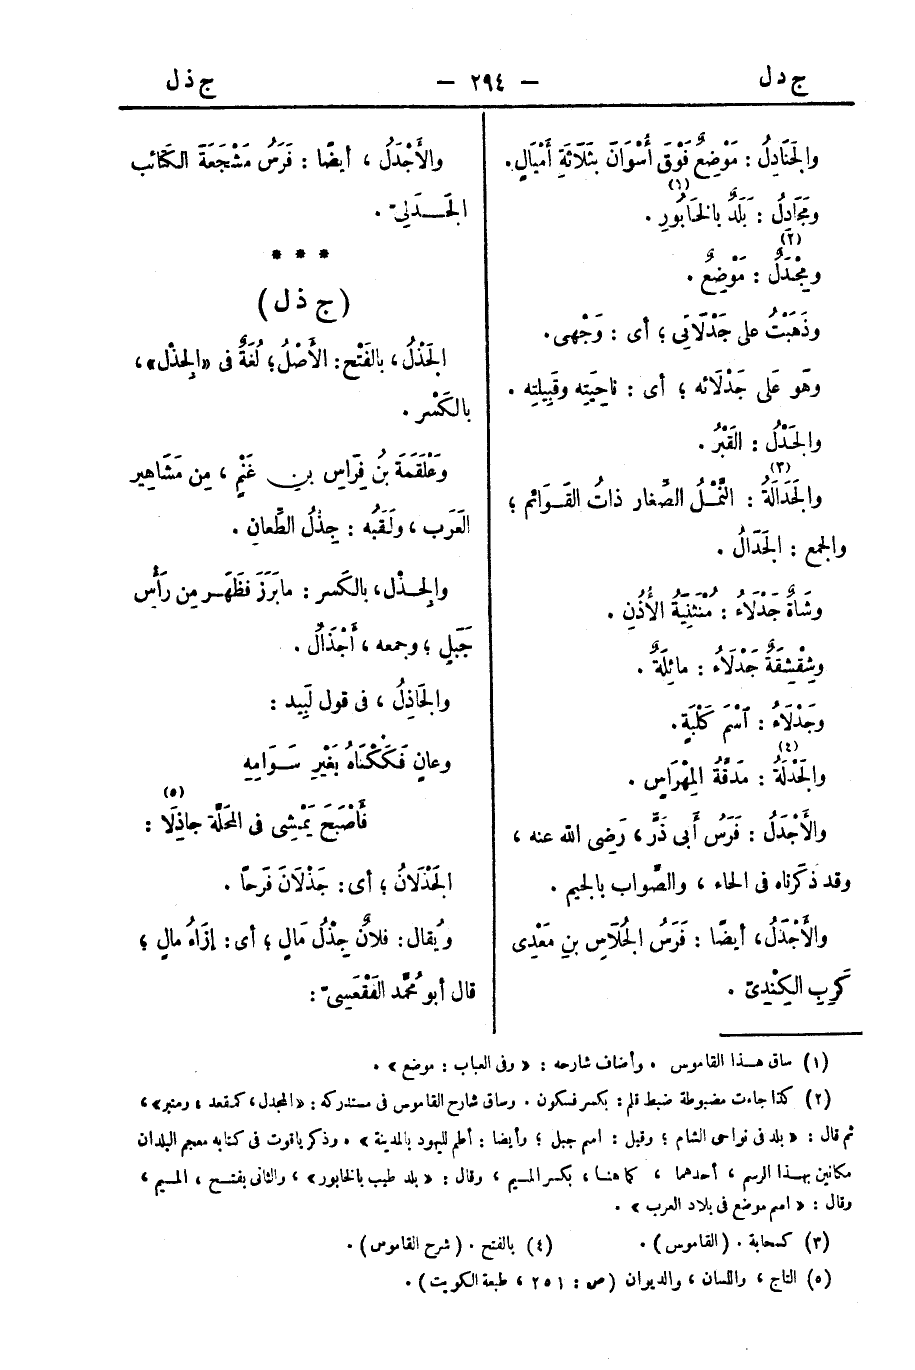 ج دل
— ٢٩٤ —
ج ذل
والجَنَادِلُ : مَوْضِعٌ فَوْقَ أُسْوَانَ بثَلَاثَةِ أَمْيَالٍ.
ومَجَادِلُ : بَلَدٌ بالخَابُورِ(١) .
ومِجْدَلٌ(٢) : مَوْضِعٌ .
وذَهَبْتُ على جَدْلَانِى ؛ أى : وَجْهى.
وهو عَلَى جَدْلَائه ؛ أى : ناحِيَتِه وقَبِيلتِه .
والجَدْلُ : القَبْرُ .
والجَدَالَةُ(٣) : النَّمْلُ الصِّغار ذاتُ القَوائم ؛
والجمع : الجَدَالُ .
وشَاةٌ جَدْلَاءُ : مُنْثَنِيَةُ الأُذُنِ .
وشِقْشِقَةٌ جَدْلَاءُ : مائِلَةٌ .
وجَدْلَاءُ : اَسْمَ كَلْبَةٍ.
والجَدْلَةُ(٤) : مَدَقَّةُ المِهْرَاسِ .
والأَجْدَلُ : فَرَسُ أَبى ذَرٍّ ، رَضِى الله عنه ،
وقد ذكَرناه فى الحاء ، والصَّواب بالجيم .
والأَجْدَلُ، أيضًا : فَرَسُ الجُلَاسِ بنِ مَعْدِى
كَرِبِ الكِنْدِىّ .
والأَجْدَلُ ، أيضًا : فَرَسُ مَشْجَعَةَ الكَتائب
الجَدَلِىّ .
* * *
(ج ذل)
الجَذْلُ، بالفَتْح: الأَصْلُ؛ لُغَةٌ فى «الجِذْل»،
بالكَسْر .
وعَلْقَمَة بنُ فِرَاسِ بنِ غَنْمٍ ، مِن مَشَاهِير
العَرَب ، ولَقَبُه : جِذْلُ الطِّعانِ .
والجِذْل، بالكَسر : مابَرَزَ فظَهَر مِن رَأْس
جَبَلٍ ؛ وجمعه ، أَجْذَالٌ .
والجَاذِلُ ، فى قول لَبِيد :
وعانٍ فَكَكْنَاهُ بغَيْرِ سَوَامِهِ
فَأَصْبَحَ يَمْشِى فى المَحَلَّة جاذِلَا(٥) :
الجَذْلَانُ ؛ أى: جَذْلَانَ فَرِحًا .
ويُقال: فلانٌ جِذْلُ مَالٍ ؛ أى: إزَاءُ مالٍ ؛
قال أبو مُحمَّد الفَقْعَسِىّ :
(١) ساق هذا القاموس . وأضاف شارحه : « وفى العباب : موضع » .
(٢) كذا جاءت مضبوطة ضبط قلم : بكسر فسكون . وساق شارح القاموس فى مستدركه : «المجدل، كمقعد ، ومنبر»،
ثم قال : « بلد فى نواحى الشام ؛ وقيل : اسم جبل ؛ وأيضا : أطم لليهود بالمدينة » . وذكر ياقوت فى كتابه معجم البلدان
مكانين بهذا الرسم ، أحدهما ، كما هنا ، بكسر الميم ، وقال : « بلد طيب بالخابور» ، والثانى بفتح ، الميم ،
وقال : « اسم موضع فى بلاد العرب » .
(٣) كسحابة . (القاموس) .
(٤) بالفتح . (شرح القاموس) .
(٥) التاج ، واللسان ، والديوان (ص : ٢٥١ ، طبعة الكويت) .